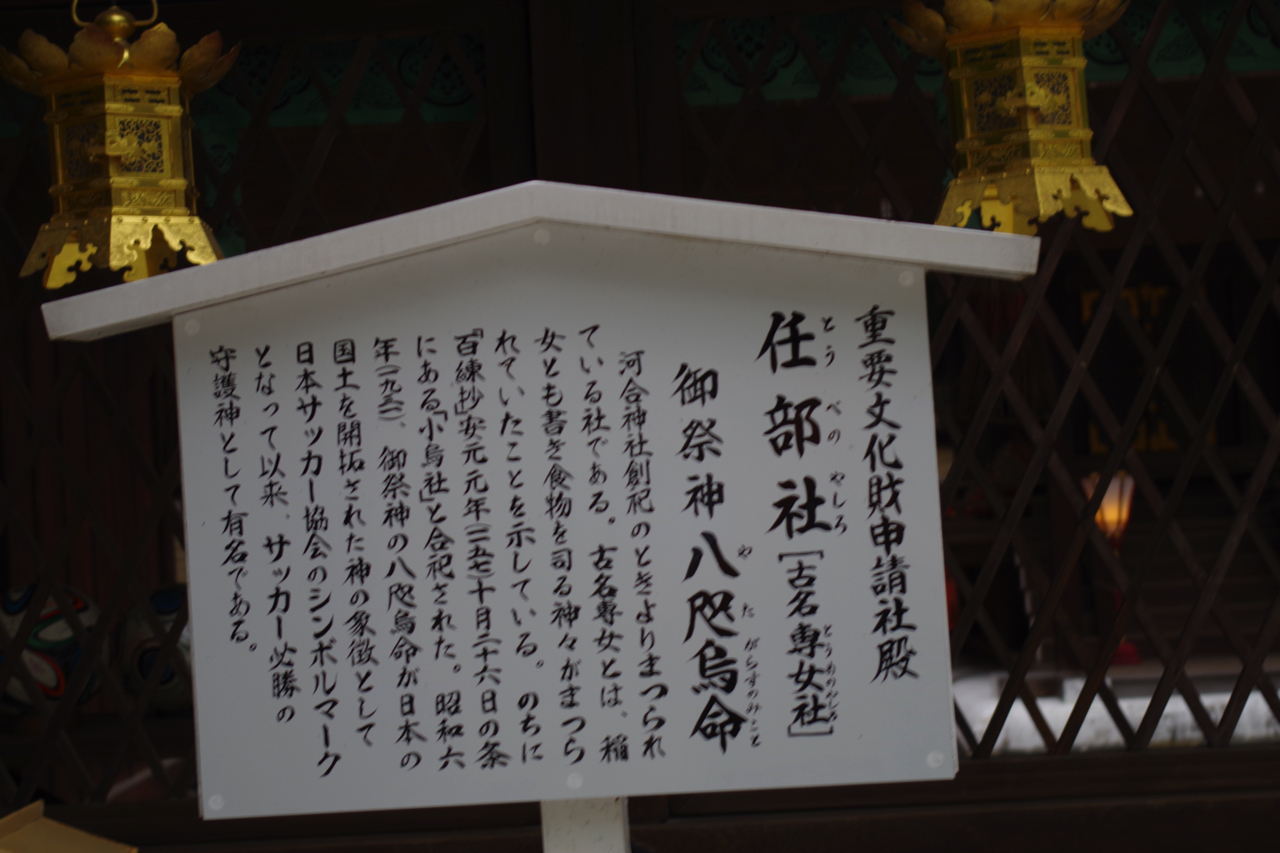 重要文化財申請社殿
とう べの やしろ
任部社[古名専女社]
とうめのやしろ
御祭神八咫烏命
や た がらすのみこと
河合神社創祀のときよりまつられ
ている社である。古名専女とは、稲
女とも書き食物を司る神々がまつら
れていたことを示している。のちに
『百練抄』安元元年(一一七五)十月二十六日の条
にある「小烏社」と合祀された。昭和六
年(一九三一)、御祭神の八咫烏命が日本の
国土を開拓された神の象徴として
日本サッカー協会のシンボルマーク
となって以来、サッカー必勝の
守護神として有名である。